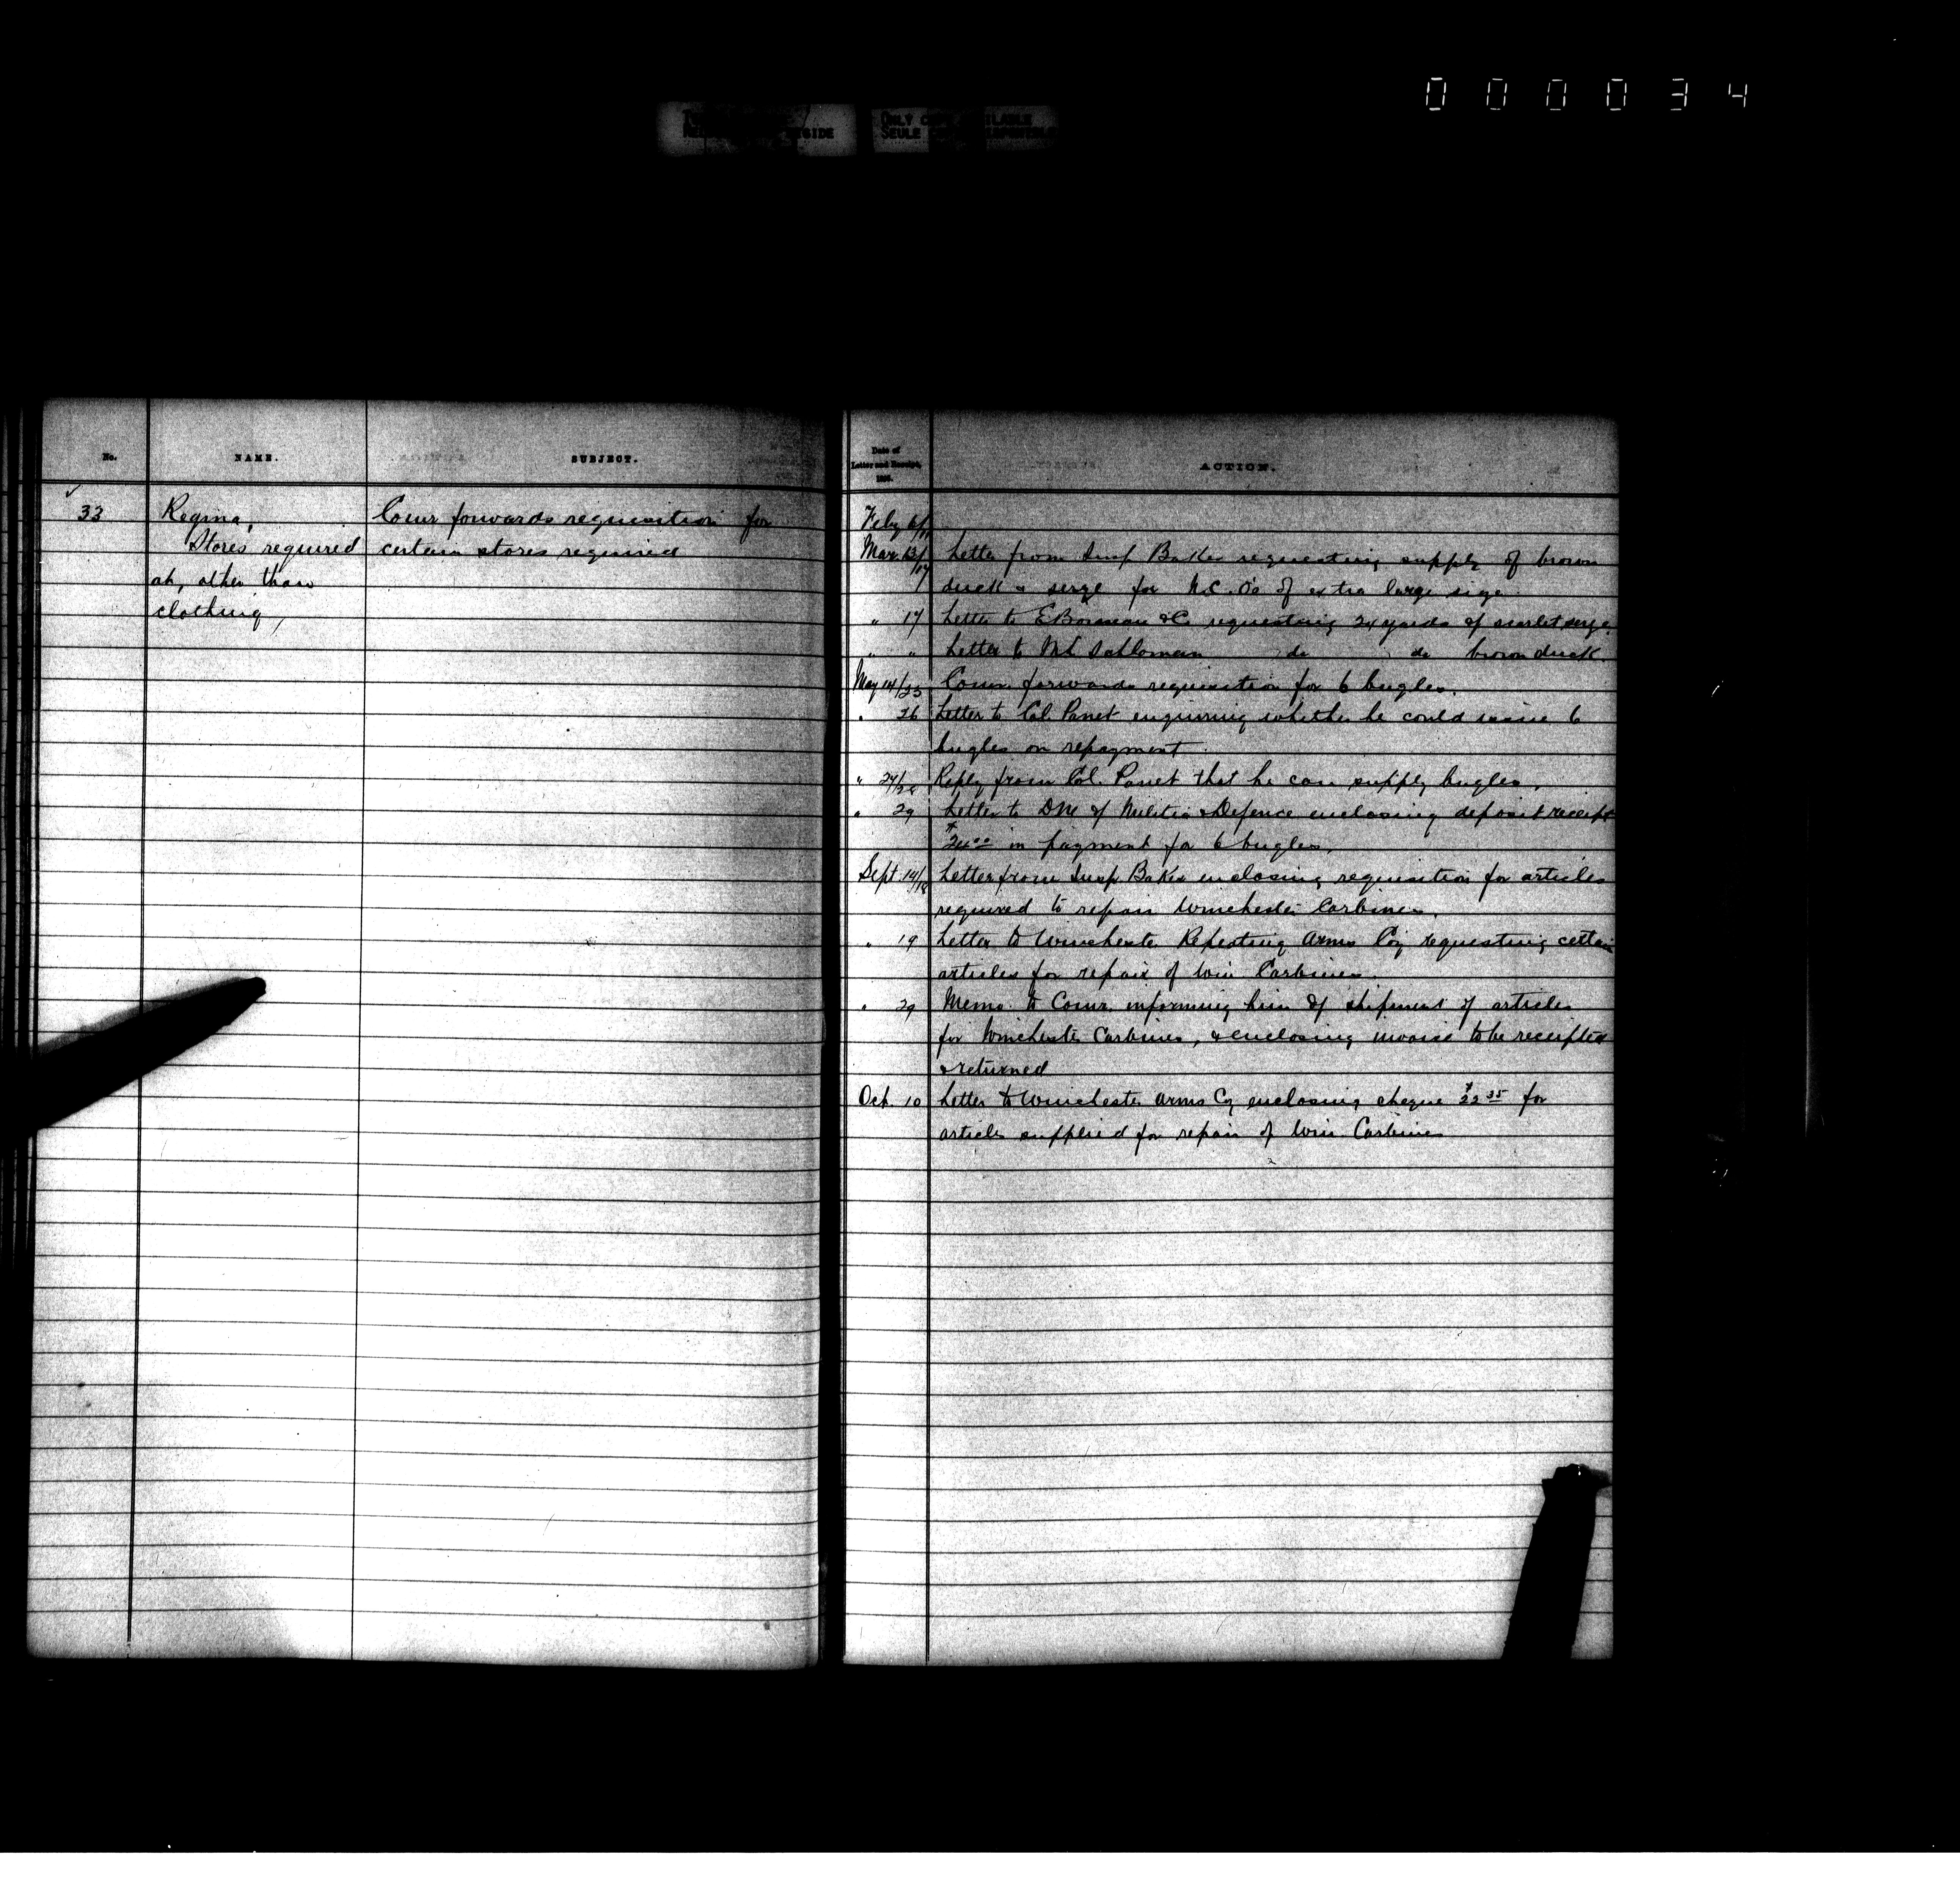 000034
ONLY COPY AVAILABLE
SEULE
No.
NAME.
SUBJECT.
33
Regina,
Stores required
at, other than
clothing,
Comr forwards requisition for
certain stores required
Date of
Letter and Receipt,
ACTION.
Feby 6/11
Mar. 13/17 Letter from Insp Baker requesting supply of brown
duck & serge for N.C.O's of extra large size.
" 17 Letter to E Boisseau & Co requesting 24 yards of scarlet serge.
" " Letter to do do brown duck.
May 14/25 Comr. forwards requisition for 6 bugles.
" 26 Letter to Col. Panet enquiring whether he could issue 6
bugles on repayment.
" 27/28 Reply from Col. Panet that he can supply bugles.
" 29 Letter to DM of Militia & Defence enclosing deposit receipt
$24.00 in payment for 6 bugles.
Sept. 14/18 Letter from Insp. Baker enclosing requisition for articles
required to repair Winchester Carbines.
" 19 Letter to Winchester Repeating Arms Coy requesting certain
articles for repair of Win Carbines.
" 29 Memo. to Comr. informing him of shipment of articles
for Winchester Carbines, & enclosing invoice to be receipted
& returned
Oct. 10 Letter to Winchester Arms Cy enclosing cheque $22.35 for
articles supplied for repair of Win Carbines